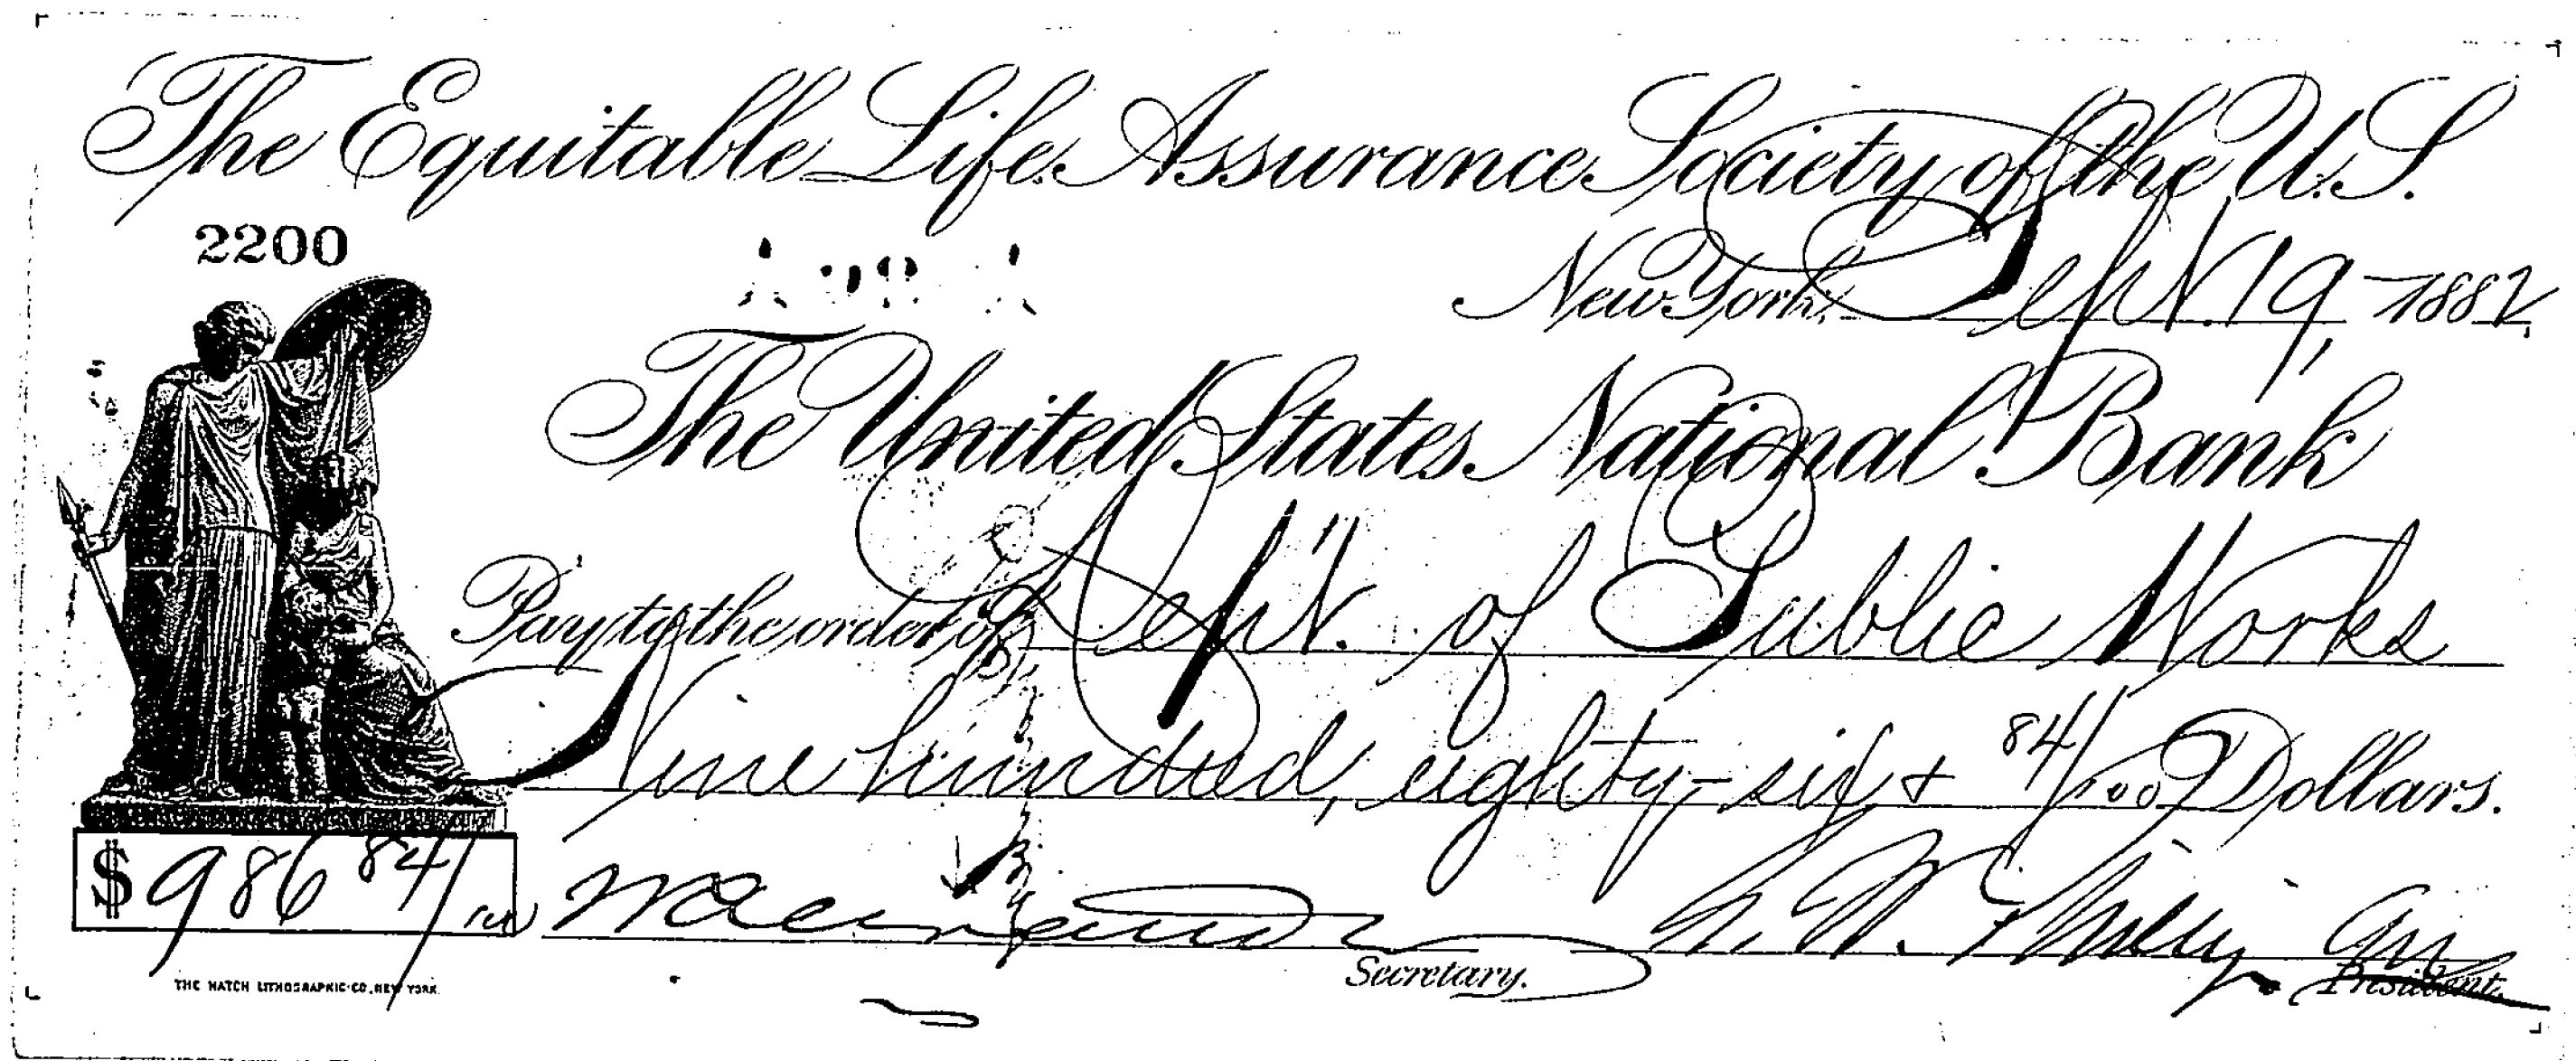 The Equitable Life Assurance Society of the U.S.
2200
New York, Sept. 19, 1882
The United States National Bank
Pay to the order of Dept. of Public Works
Nine hundred, eighty-six + 84/100 Dollars.
$ 986 84/100
Secretary.
President.
THE HATCH LITHOGRAPHIC CO. NEW YORK